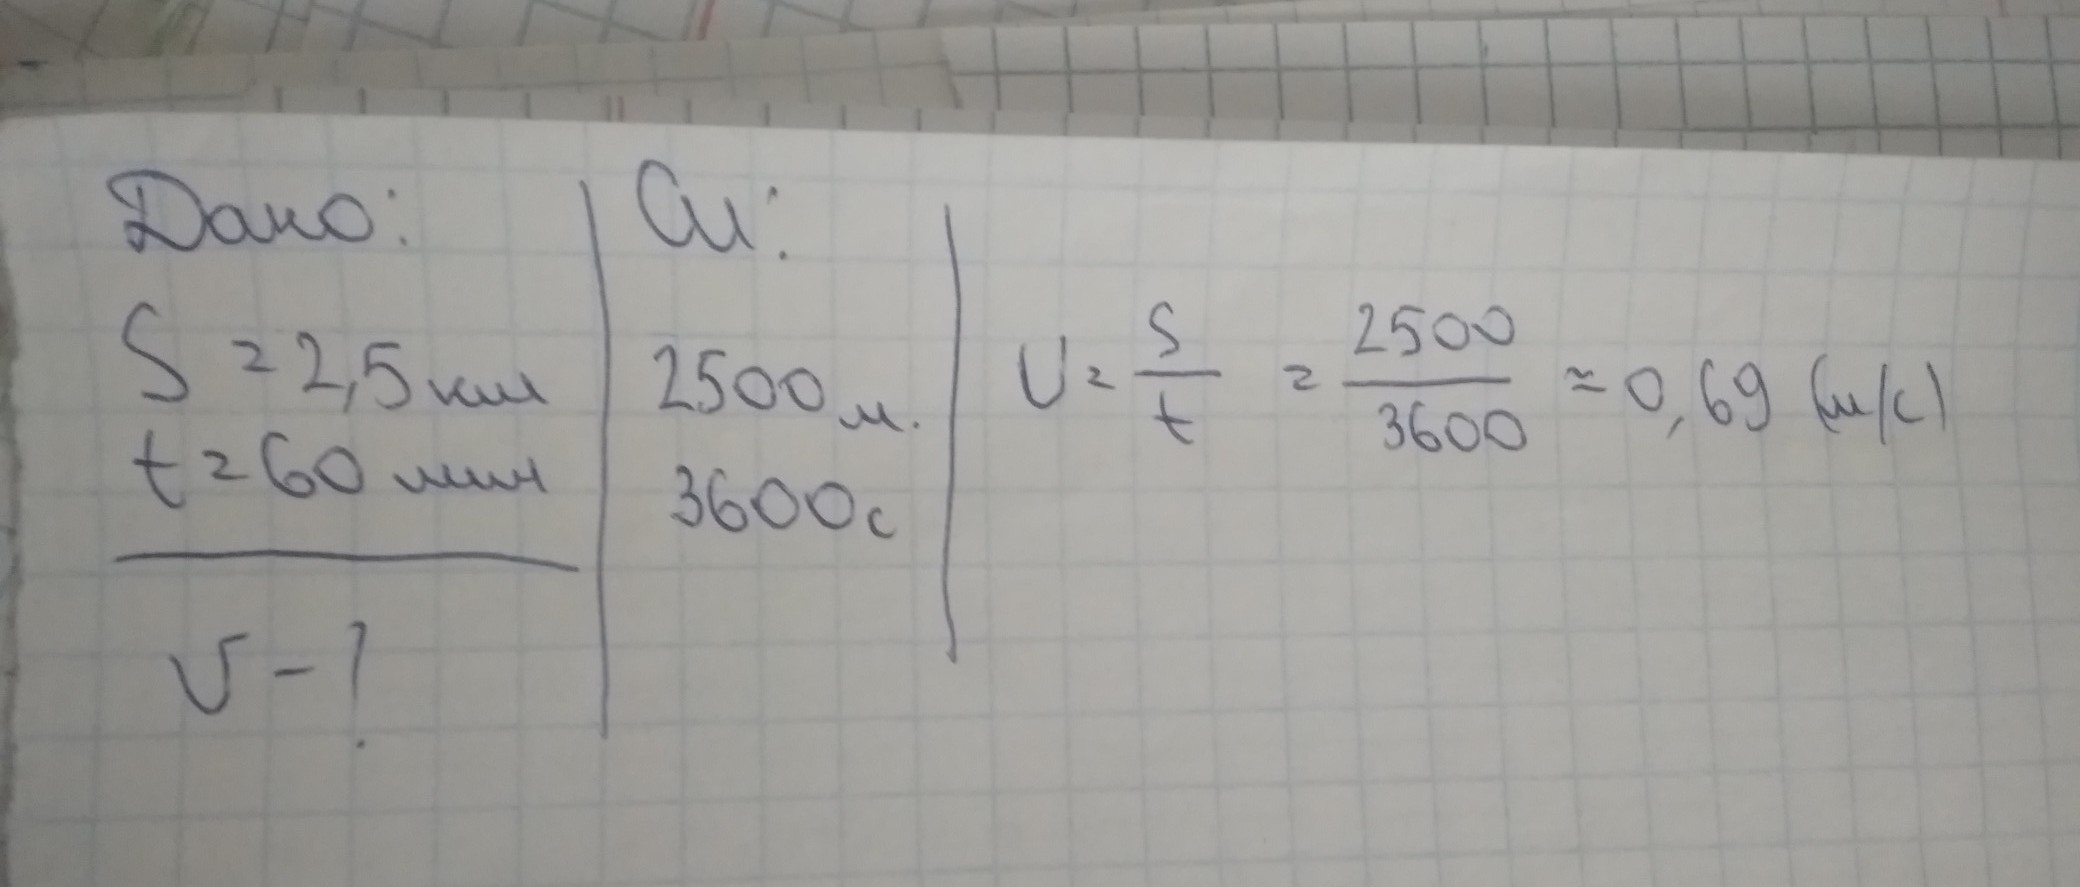 Дано:
S = 2,5 км
t = 60 мин
v - ?
Си:
2500 м.
3600 с
v = S/t = 2500/3600 ≈ 0,69 (м/с)